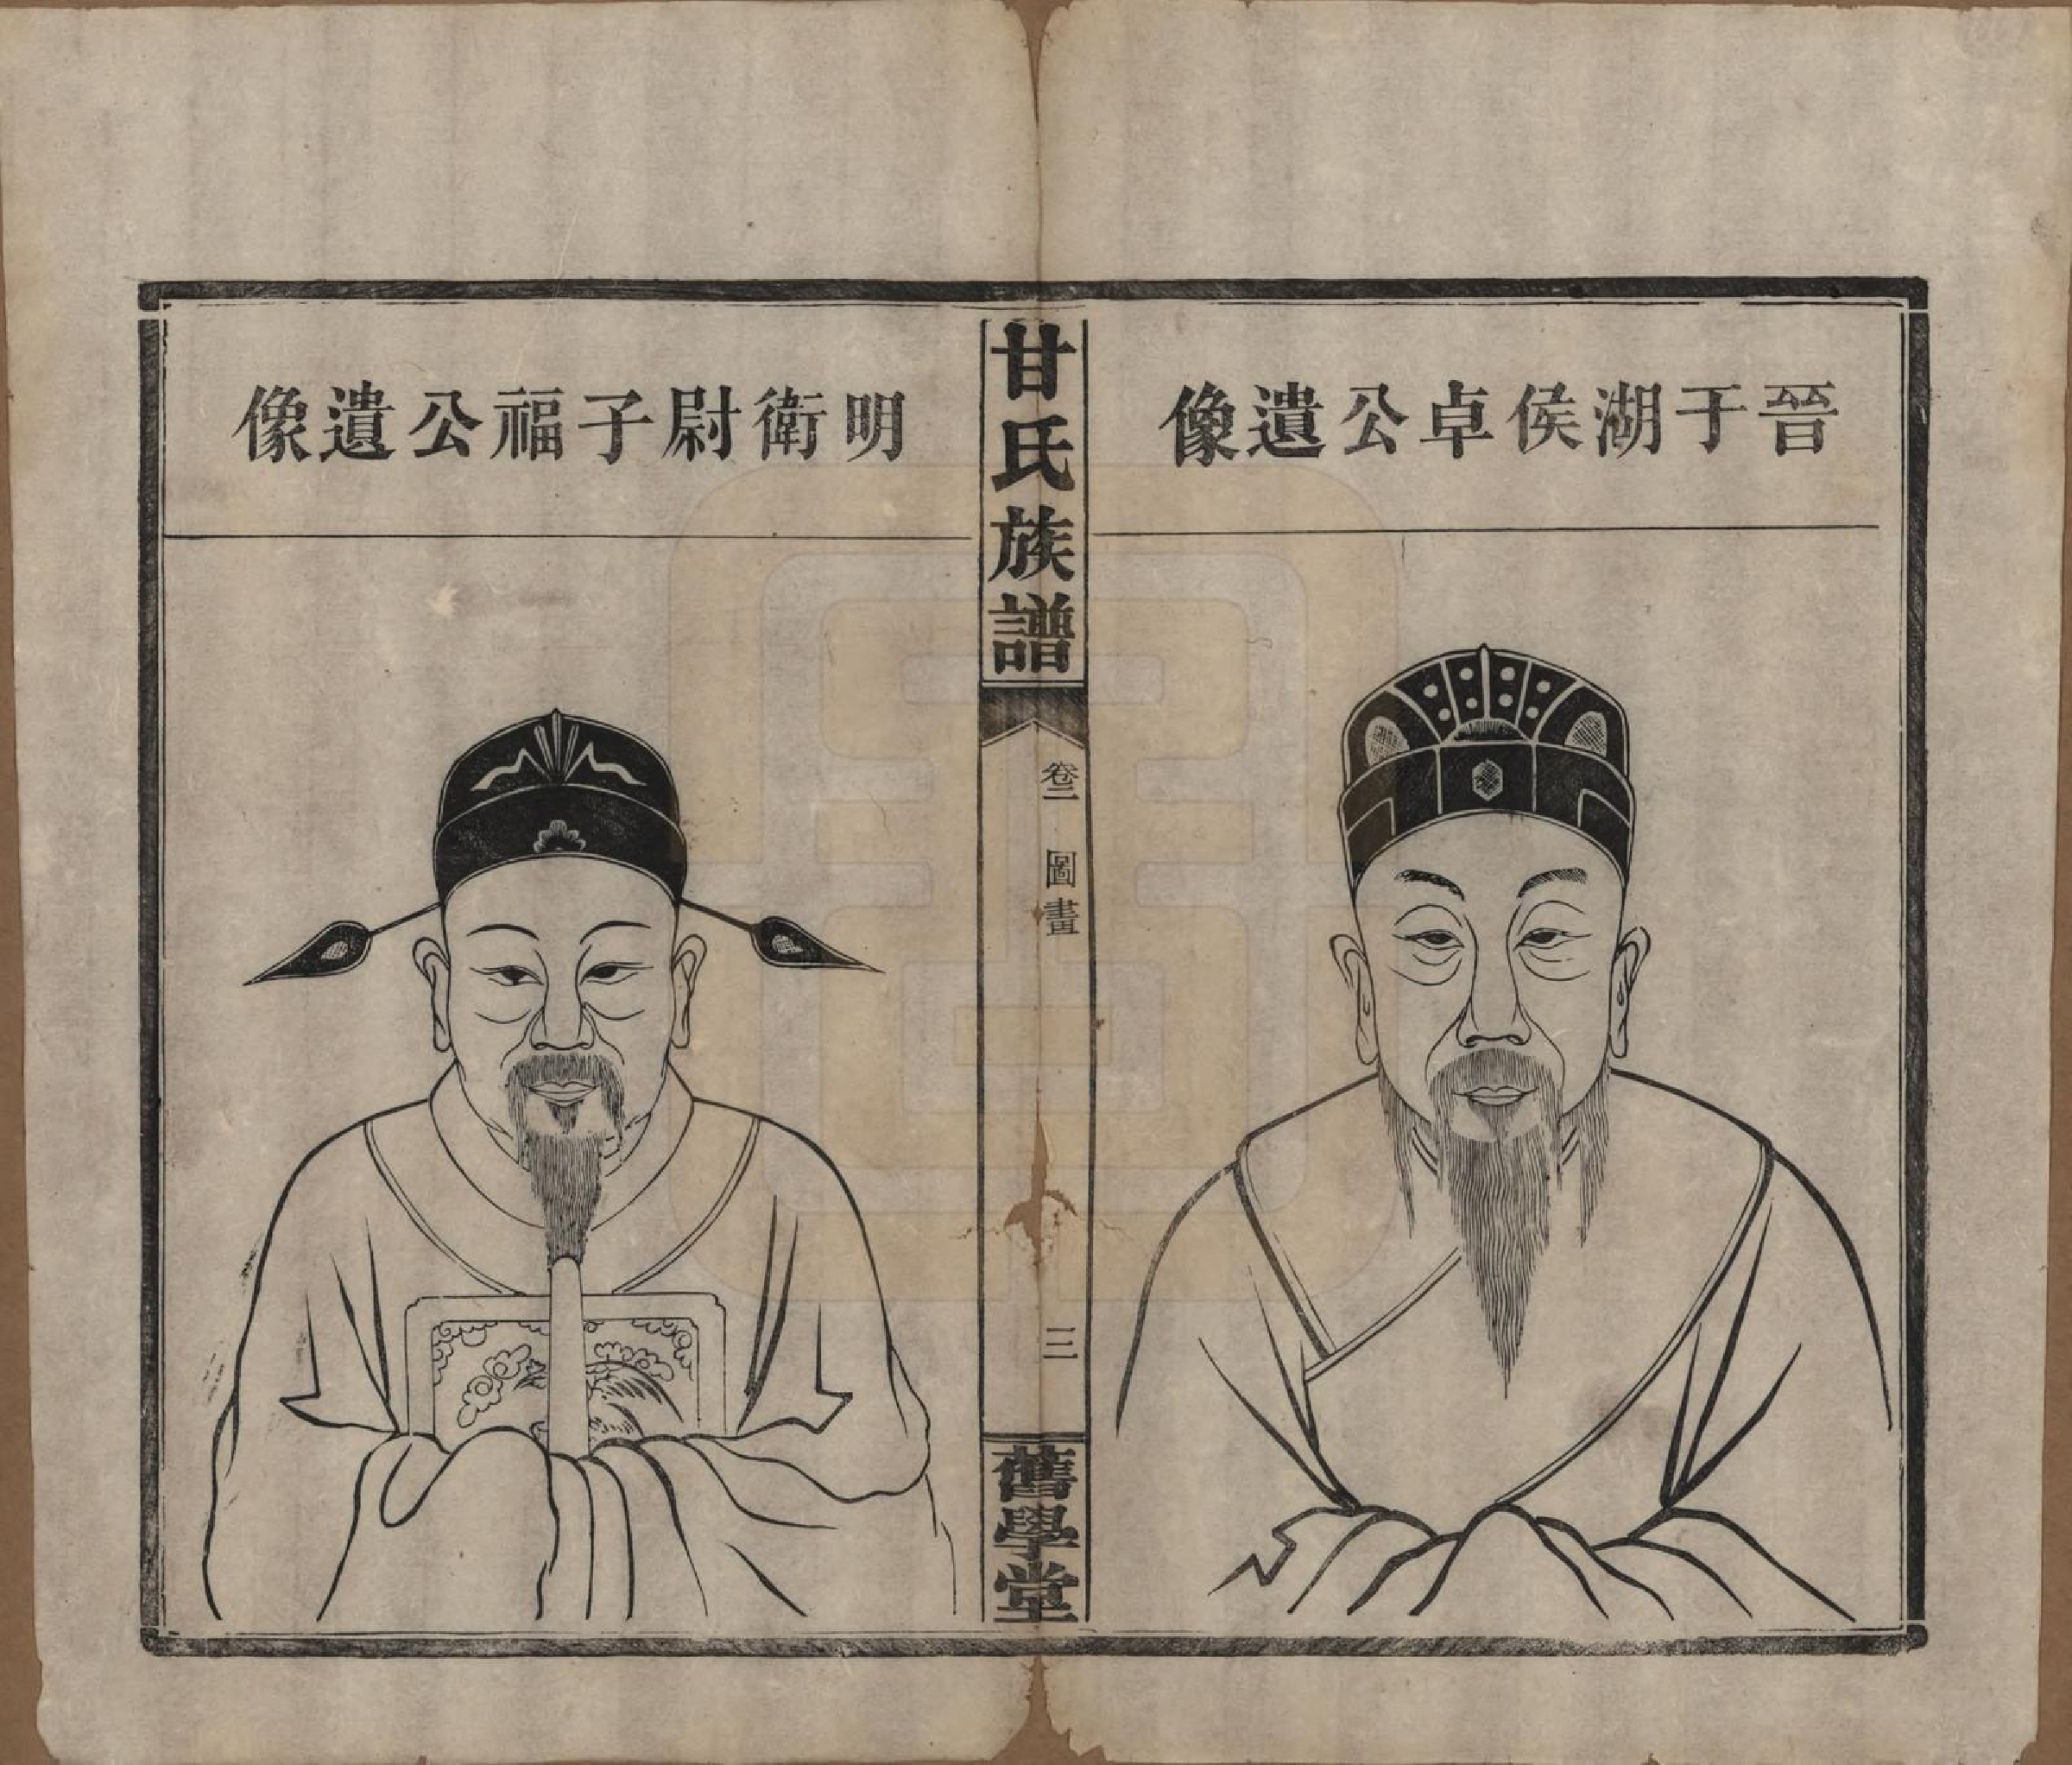 晉于湖侯卓公遺像
甘氏族譜
卷二
圖畫
三
舊學堂
明衛尉子福公遺像